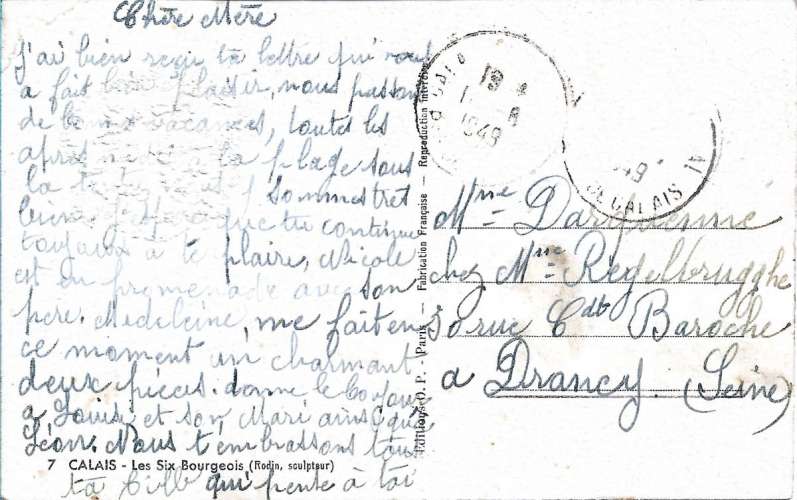 Chère Mère
J'ai bien reçu ta lettre qui nous
a fait bien plaisir, nous passons
de bonnes vacances, toutes les
après midi à la plage sous
la tente, nous y sommes très
bien. J'espère que tu continue
toujours à te plaire, Nicole
est en promenade avec son
père. Madeleine, me fait en
ce moment un charmant
deux pièces. donne le bonjour
a Louise et son Mari ainsi qu'à
Léon. Nous t'embrassons tous
ta fille qui pense à toi
7 CALAIS - Les Six Bourgeois (Rodin, sculpteur)
Editions O. P. - Paris - Fabrication Française - Reproduction Interdite
19
1949
CALAIS
Mme Darquenne
chez Mme Regelbrugghe
30 rue Cdt Baroche
a Drancy. (Seine)